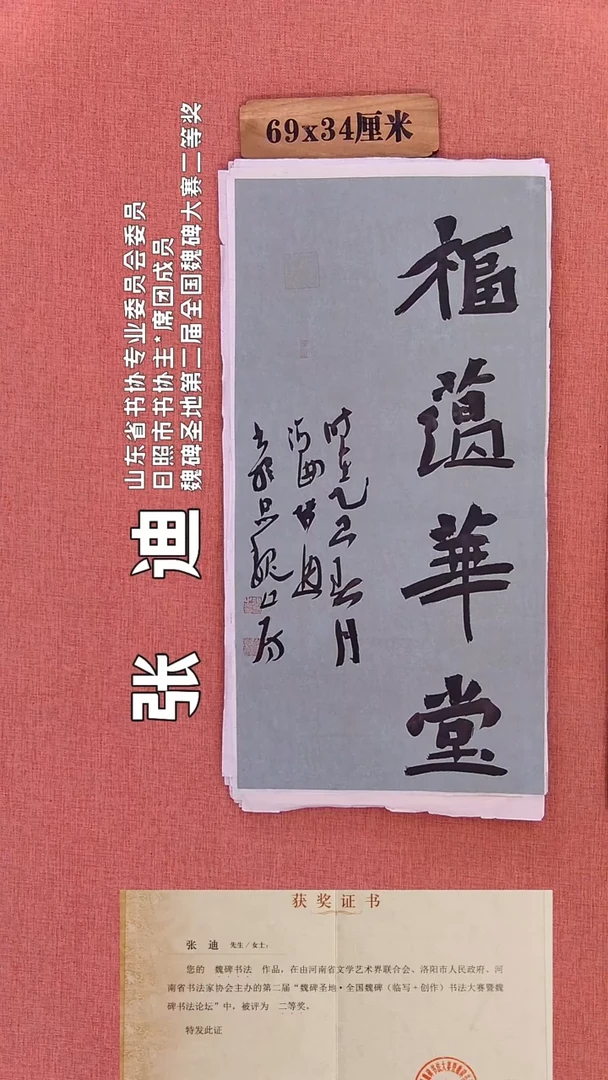 69x34厘米
福蕴華堂
时在乙巳春月
山东省书协专业委员会委员
日照市书协主*席团成员
魏碑圣地第二届全国魏碑大赛二等奖
张 迪
获奖证书
张 迪 先生/女士:
您的 魏碑书法 作品,在由河南省文学艺术界联合会、洛阳市人民政府、河
南省书法家协会主办的第二届“魏碑圣地·全国魏碑(临写+创作)书法大赛暨魏
碑书法论坛”中,被评为 二等奖。
特发此证